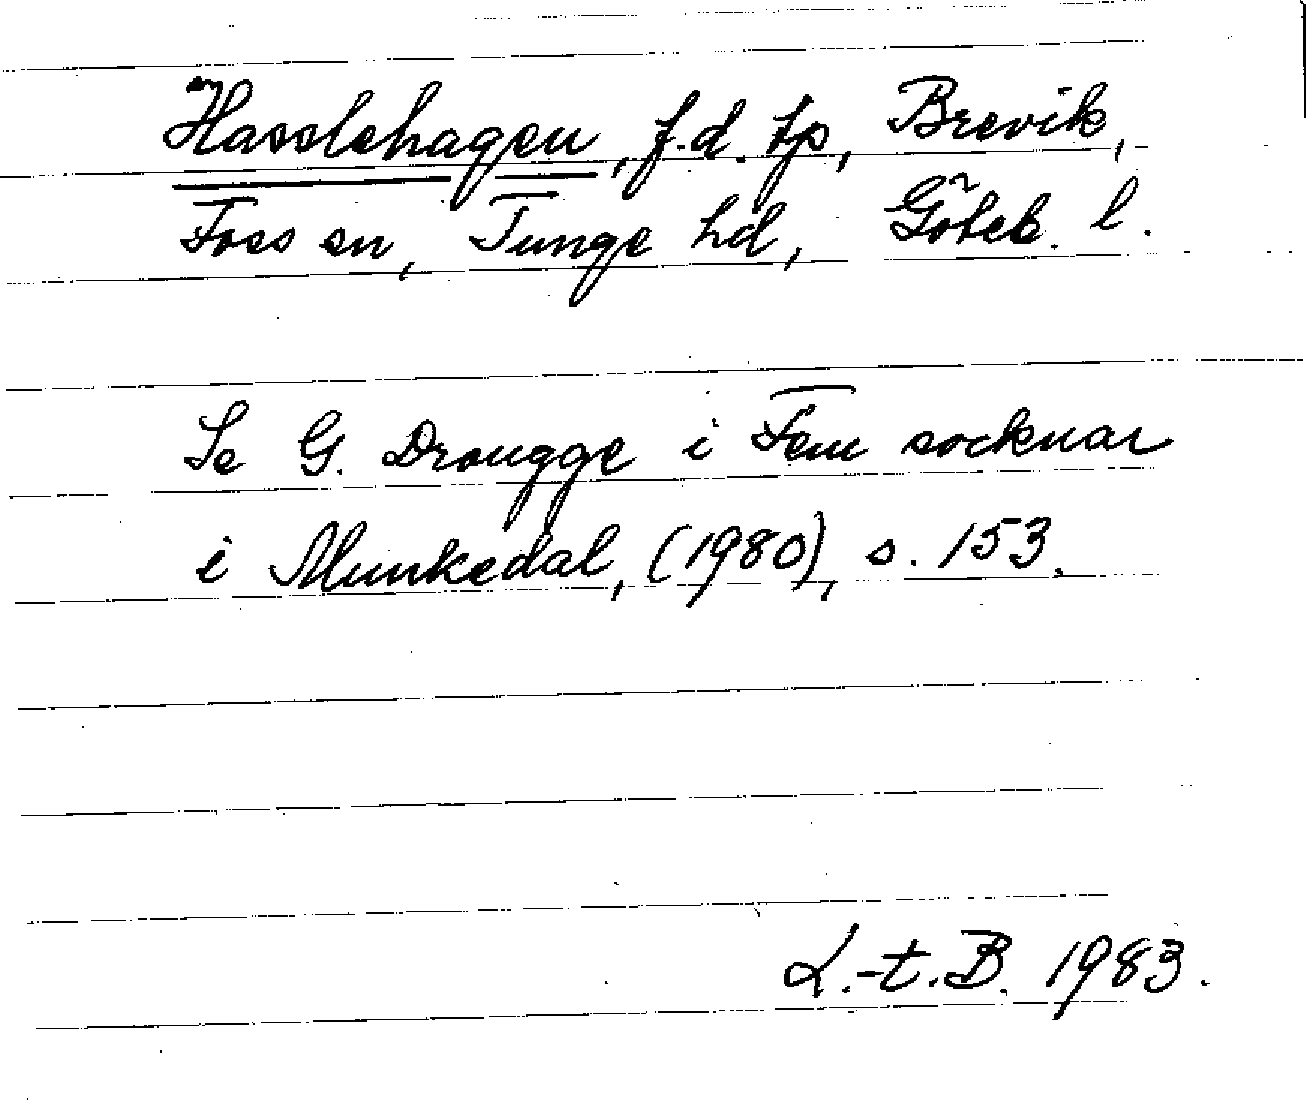 Hasslehagen, f.d. tp, Brevik,
Foss sn, Tunge hd, Göteb. l.
Se G. Drougge i Fem socknar
i Munkedal, (1980), s. 153.
L.-t. B. 1983.